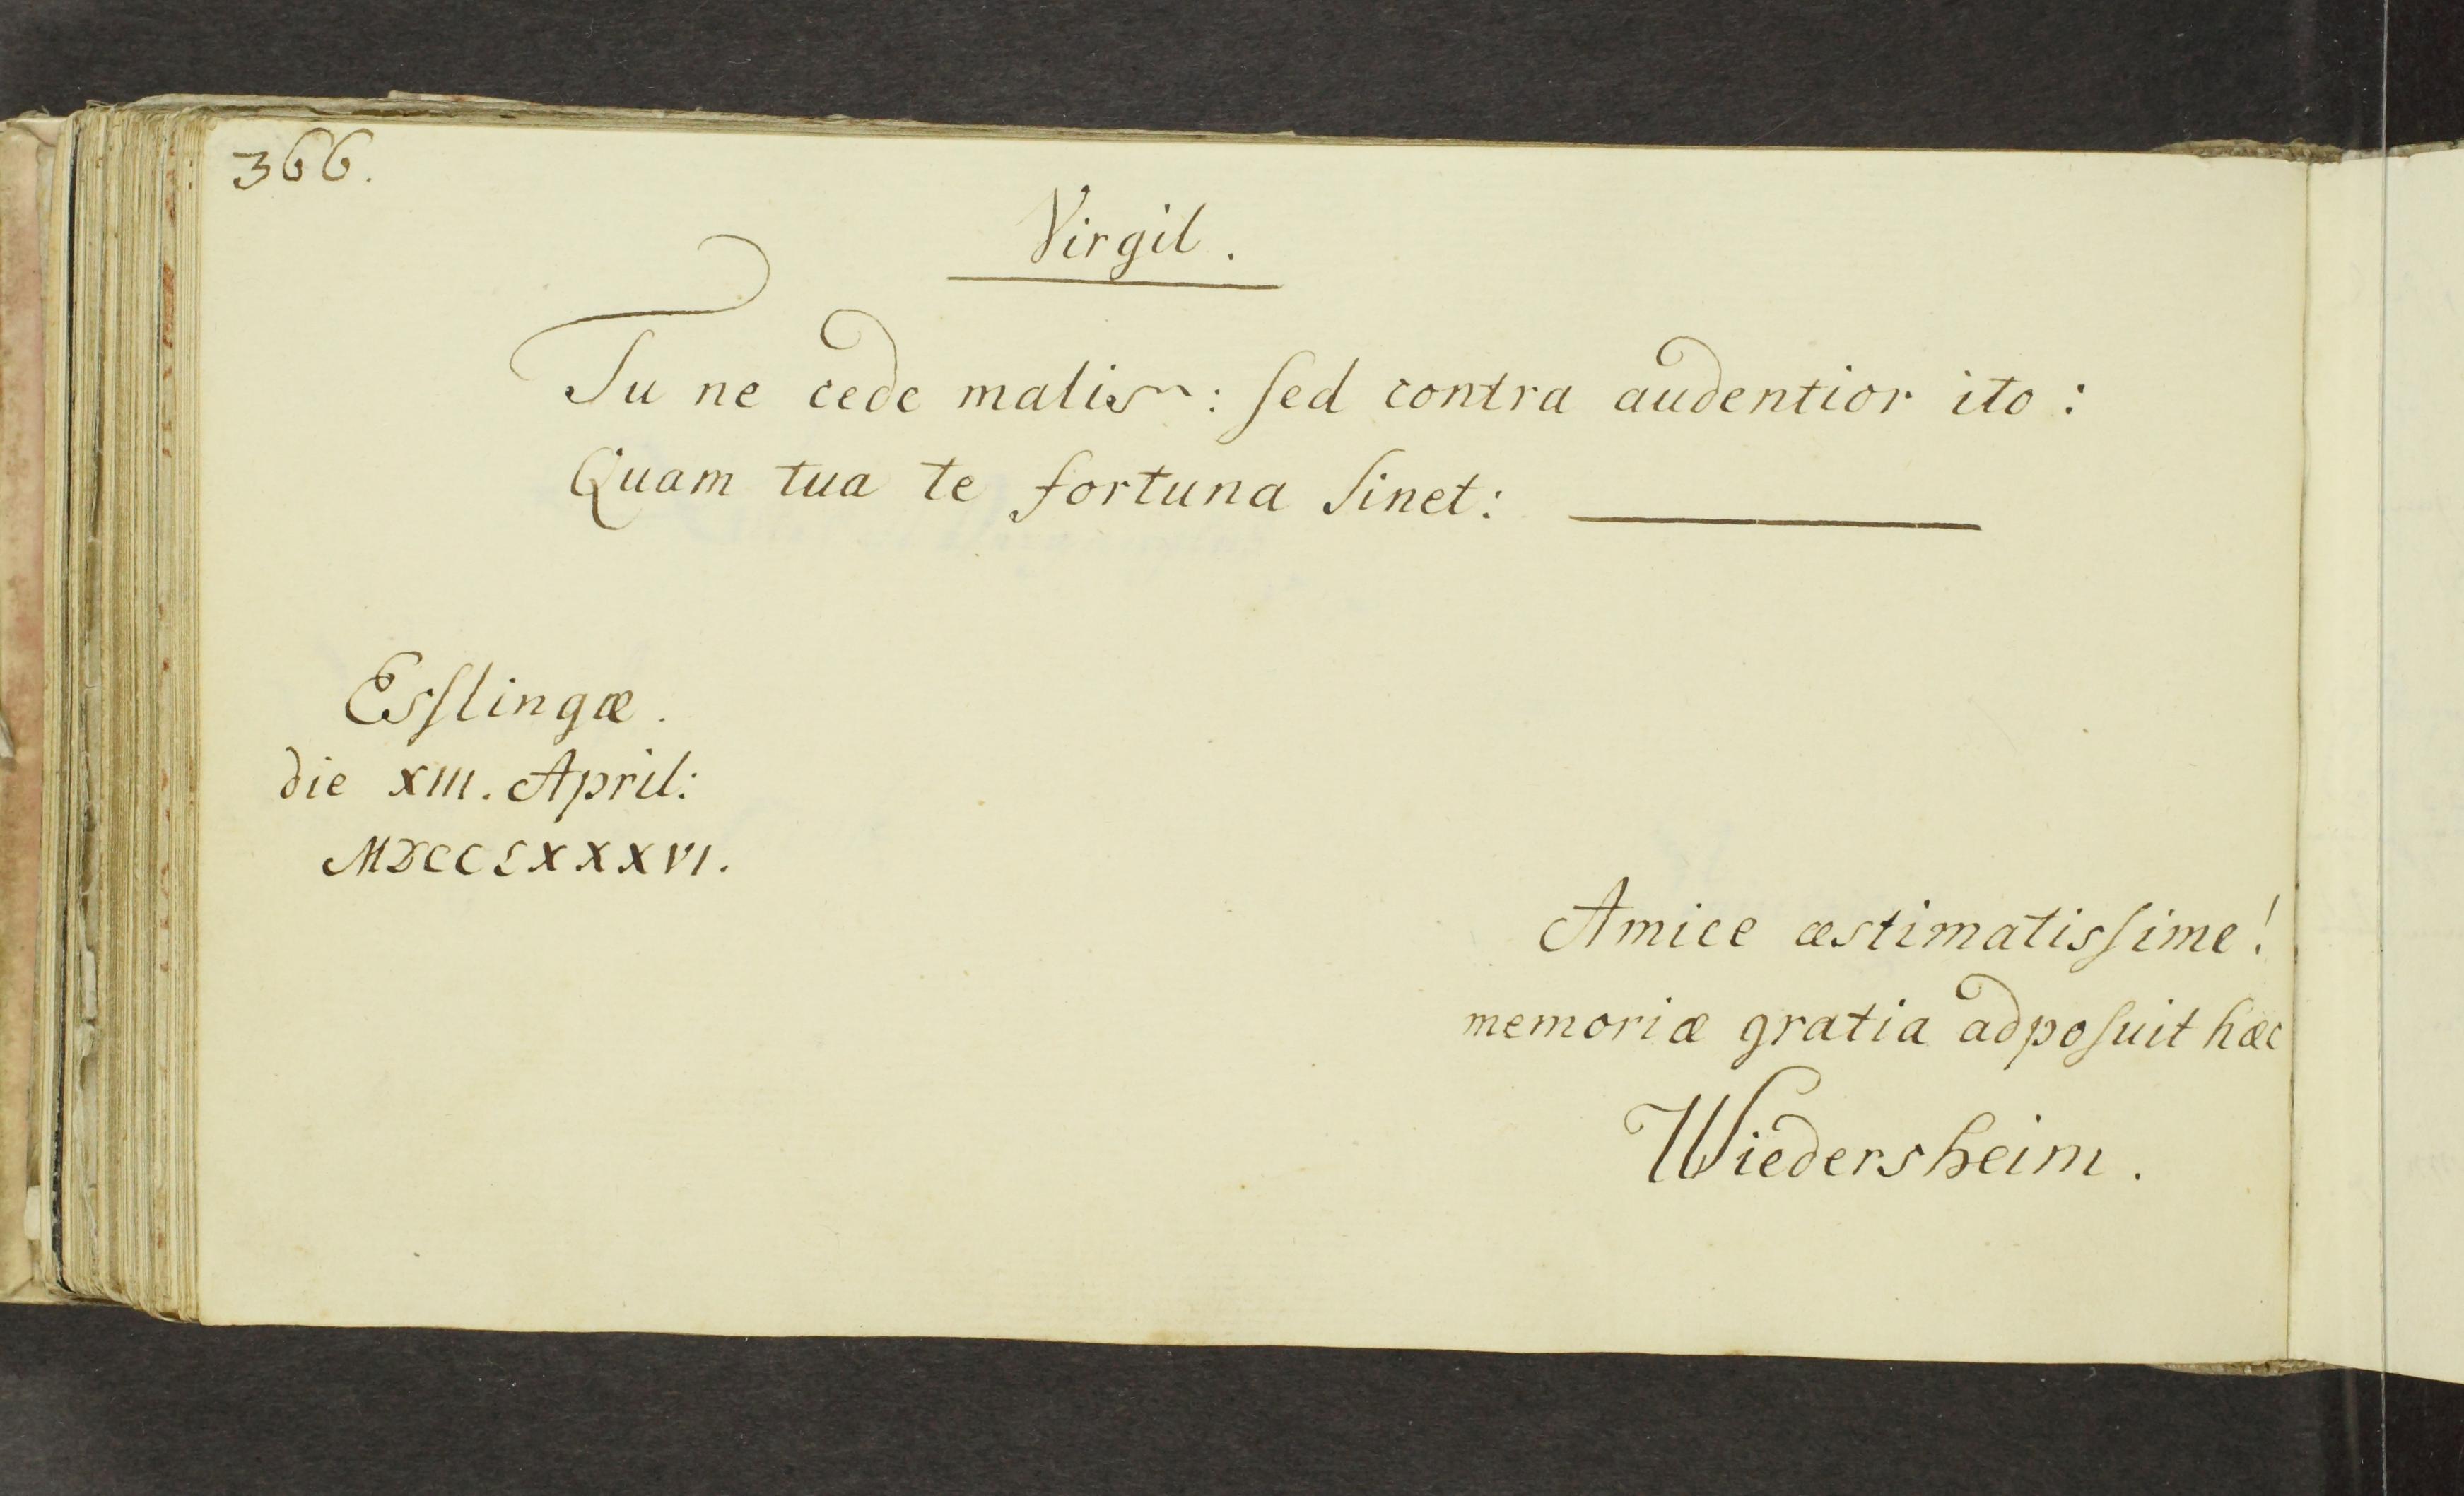 366.
Virgil.
Tu ne cede malis: ſed contra audentior ito:
Quam tua te fortuna ſinet: ———
Esſlingæ.
die XIII. April:
MDCCLXXXVI.
Amice æstimatisſime!
memoriæ gratia adpoſuit hæc
Wiedersheim.